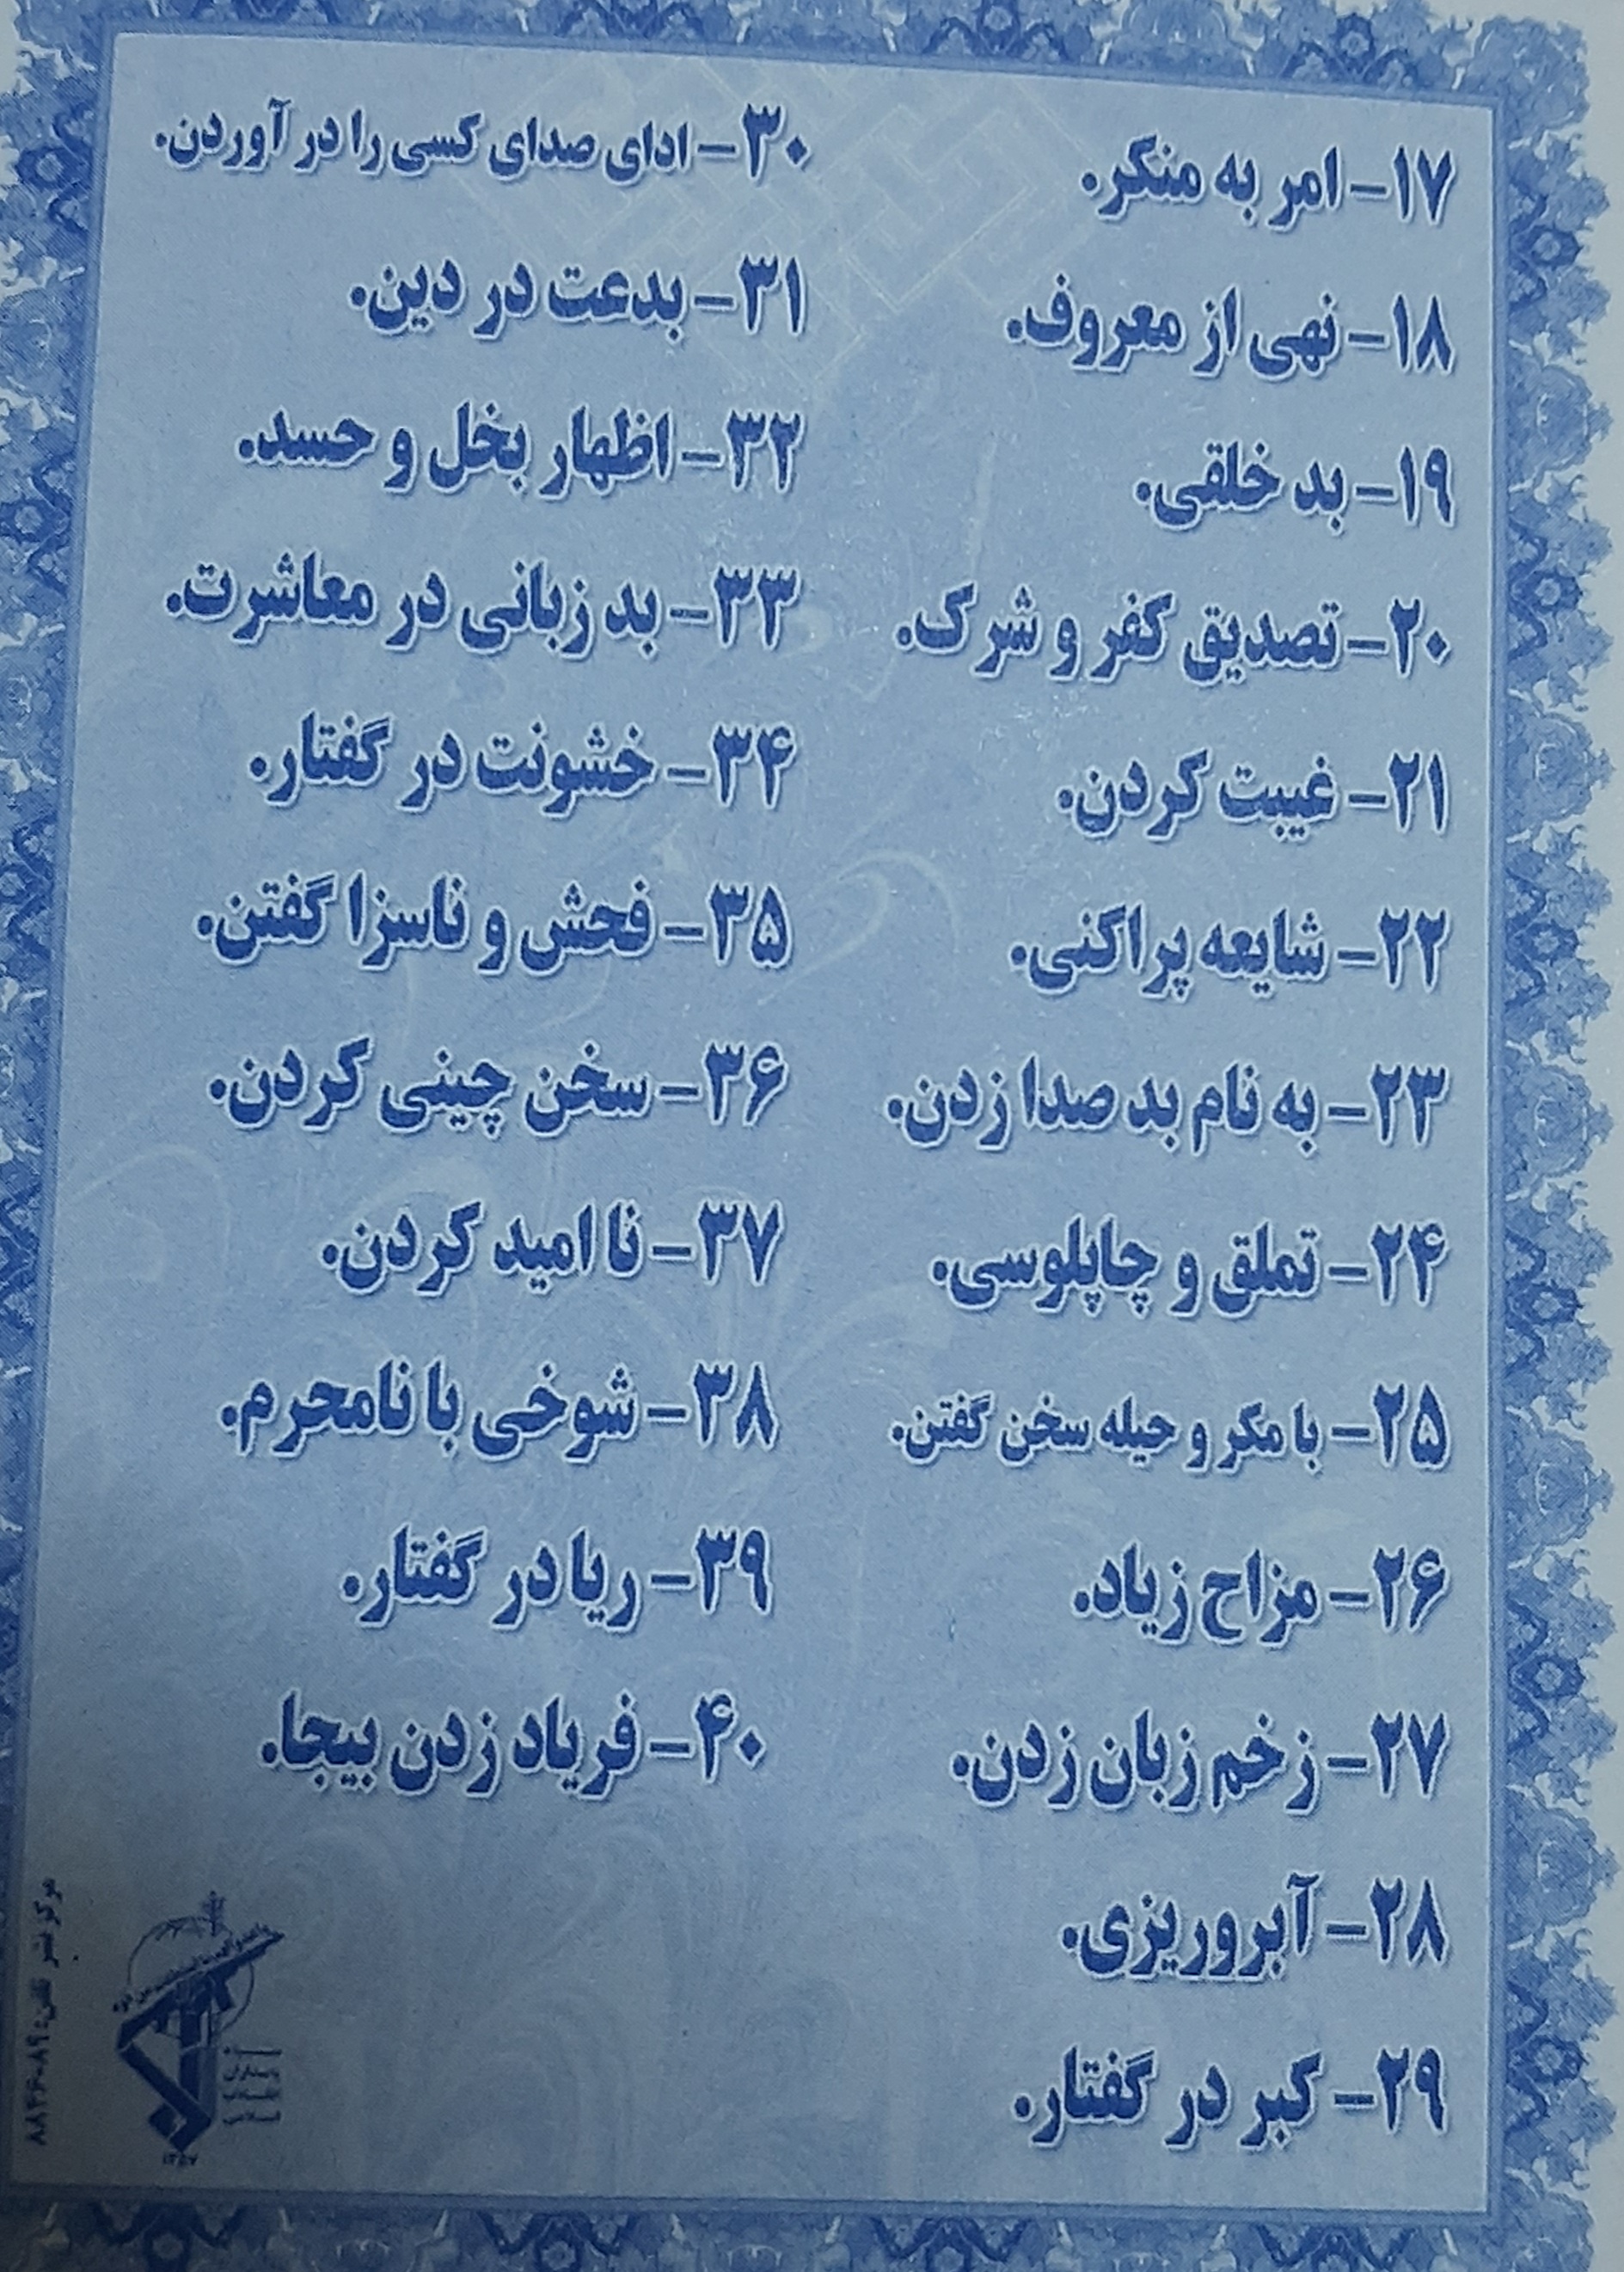 ۱۷- امر به منکر.
۱۸- نهی از معروف.
۱۹- بد خلقی.
۲۰- تصدیق کفر و شرک.
۲۱- غیبت کردن.
۲۲- شایعه پراکنی.
۲۳- به نام بد صدا زدن.
۲۴- تملق و چاپلوسی.
۲۵- با مکر و حیله سخن گفتن.
۲۶- مزاح زیاد.
۲۷- زخم زبان زدن.
۲۸- آبروریزی.
۲۹- کبر در گفتار.
۳۰- ادای صدای کسی را در آوردن.
۳۱- بدعت در دین.
۳۲- اظهار بخل و حسد.
۳۳- بد زبانی در معاشرت.
۳۴- خشونت در گفتار.
۳۵- فحش و ناسزا گفتن.
۳۶- سخن چینی کردن.
۳۷- نا امید کردن.
۳۸- شوخی با نامحرم.
۳۹- ریا در گفتار.
۴۰- فریاد زدن بیجا.
سپاه
پاسداران
انقلاب
اسلامی
مرکز نشر تلفن: